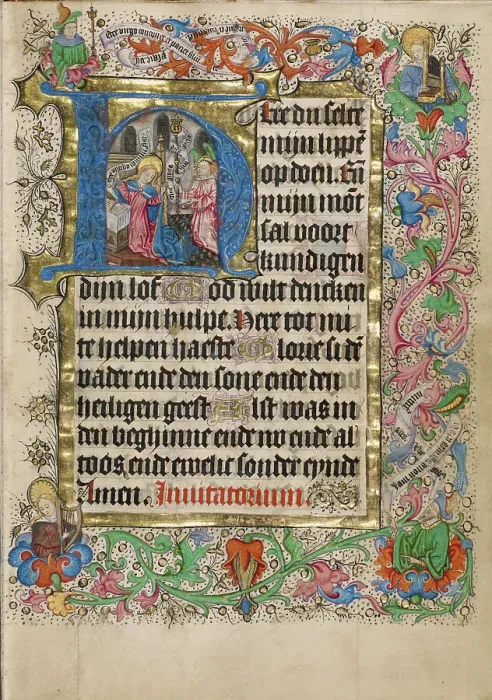 Ecce virgo concipiet et pariet filiū
Here du selte
mijn lippē
opdoen. Eñ
mijn mōt
sal voort
kundigen
dijn lof God wilt dencken
in mijn hulpe. Here tot mi
te helpen haeste Glorie si dē
vader ende den sone ende den
heiligen geest Alst was in
den beghinne ende nv ende al
toos ende ewelic sonder eynde
Amen. Inuitatorium.